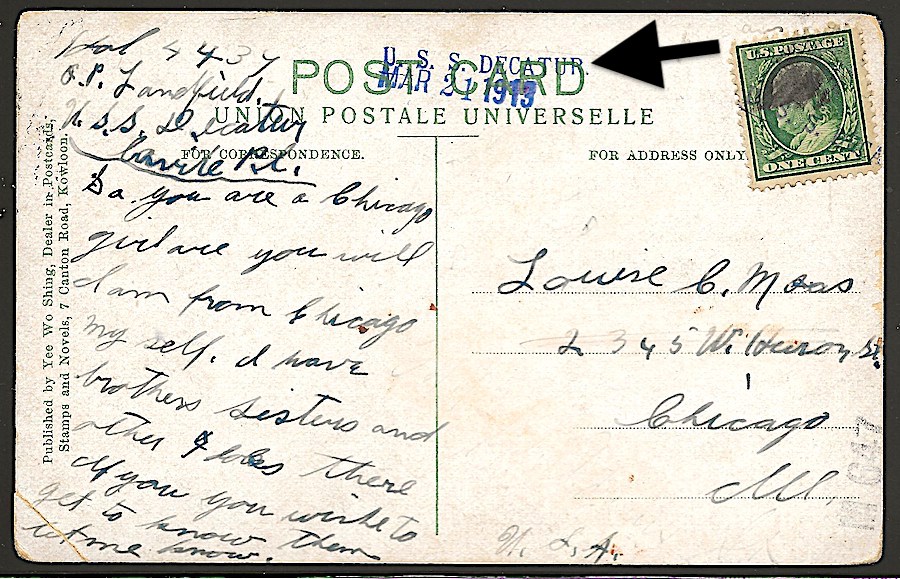 U. S. S. DECATUR.
MAR 21 1913
POST CARD
UNION POSTALE UNIVERSELLE
FOR CORRESPONDENCE.
FOR ADDRESS ONLY.
U.S. POSTAGE
ONE CENT
Published by Yee Wo Shing, Dealer in Postcards,
Stamps and Novels, 7 Canton Road, Kowloon.
4437
O.P. Landfield,
U.S.S. Decatur
Cavite P.I.
So you are a Chicago
girl are you well
I am from Chicago
my self. I have
brothers sisters and
other there
If you you wishe to
get to know them
let me know.
Louise C. Maas
2345 W. Huron St.
Chicago
Ill.
U. S. A.